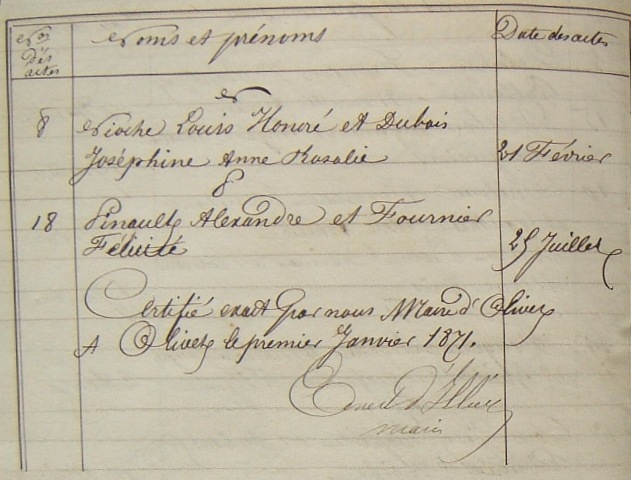 Nos des actes
Noms et prénoms
Date des actes
N
8 Nioche Louis Honoré et Dubois
Joséphine Anne Rosalie 21 Février
P
18 Pinault Alexandre et Fournier
Félicité 25 Juillet
Certifié exact par nous Maire d'Olivet
A Olivet le premier Janvier 1871.
maire